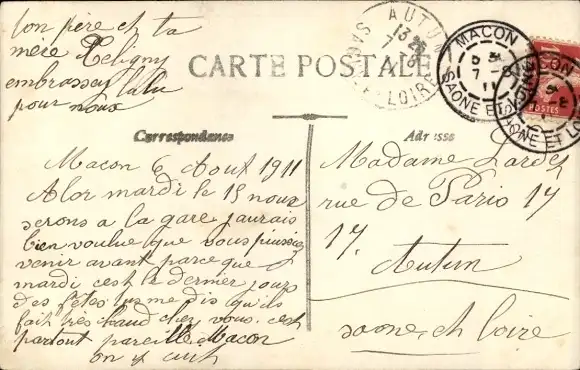 ton père et ta
mère Peligny
embrasser lulu
pour nous
CARTE POSTALE
AUTUN
SAONE ET LOIRE
13
MACON
SAONE ET LOIRE
POSTES
Correspondance
Adresse
Macon 6 Aout 1911
Alor mardi le 15 nous
serons a la gare jaurais
bien voulue que vous puissiez
venir avant parce que
mardi cest le dernier jour
des fêtes tu me dis qu'ils
fait très chaud chez vous cest
partout pareille Macon
on y cuit
Madame Lardet
rue de Paris 17
17.
Autun
saone et loire